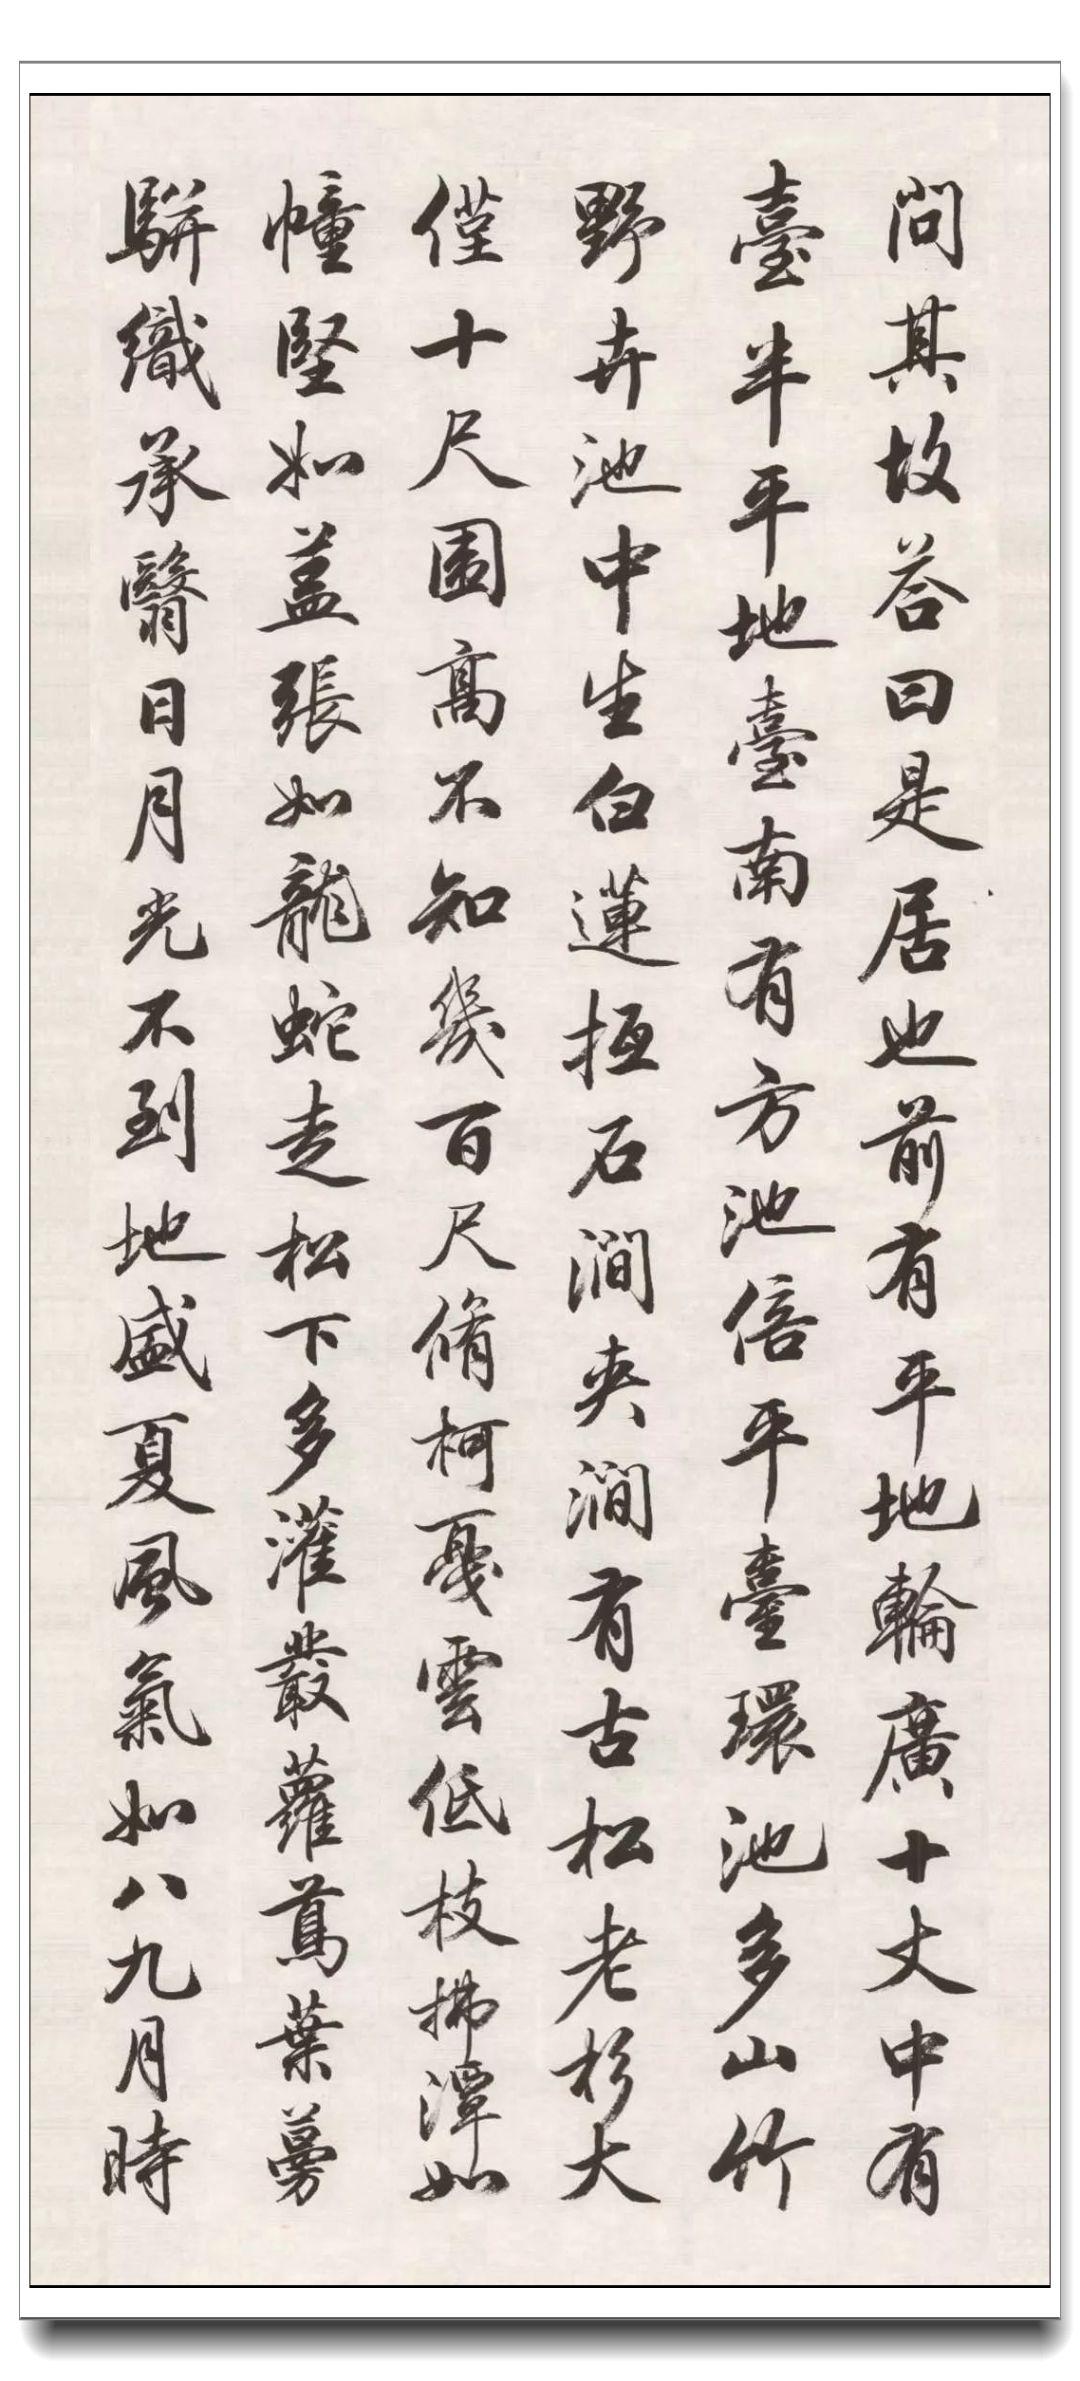 問其故荅曰是居也前有平地輪廣十丈中有
臺半平地臺南有方池倍平臺環池多山竹
野卉池中生白蓮抵石澗夾澗有古松老杉大
僅十尺圍高不知幾百尺脩柯戛雲低枝拂潭如
幢堅如盖張如龍蛇走松下多灌叢蘿蔦葉蔓
駢織承翳日月光不到地盛夏風氣如八九月時